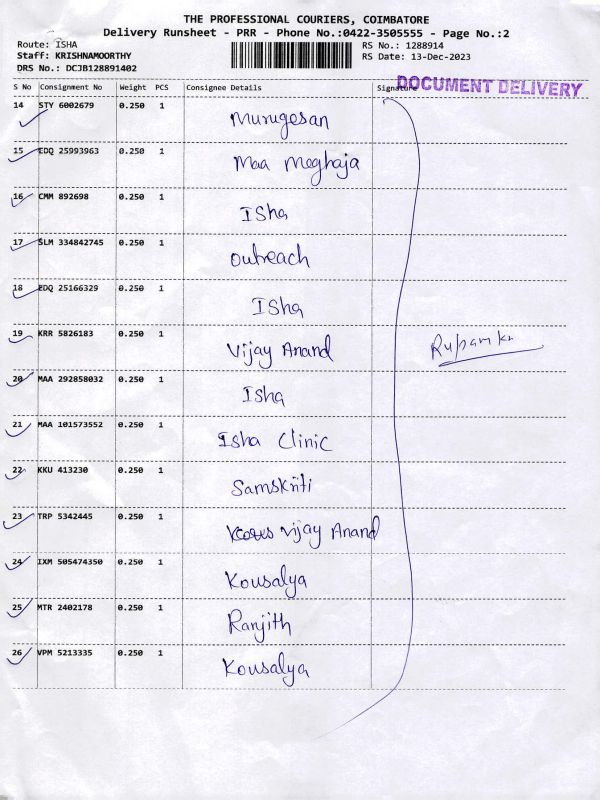 THE PROFESSIONAL COURIERS, COIMBATORE
Delivery Runsheet - PRR - Phone No.:0422-3505555 - Page No.:2
Route: ISHA RS No.: 1288914
Staff: KRISHNAMOORTHY RS Date: 13-Dec-2023
DRS No.: DCJB128891402
DOCUMENT DELIVERY
S No Consignment No Weight PCS Consignee Details Signature
14 STY 6002679 0.250 1
Murugesan
15 EDQ 25993963 0.250 1
Maa Meghaja
16 CMM 892698 0.250 1
ISha
17 SLM 334842745 0.250 1
outreach
18 EDQ 25166329 0.250 1
ISha
19 KRR 5826183 0.250 1
Vijay Anand
20 MAA 292858032 0.250 1
Isha
21 MAA 101573552 0.250 1
Isha Clinic
22 KKU 413230 0.250 1
Samskriti
23 TRP 5342445 0.250 1
Vijay Anand
24 IXM 505474350 0.250 1
Kousalya
25 MTR 2402178 0.250 1
Ranjith
26 VPM 5213335 0.250 1
Kousalya